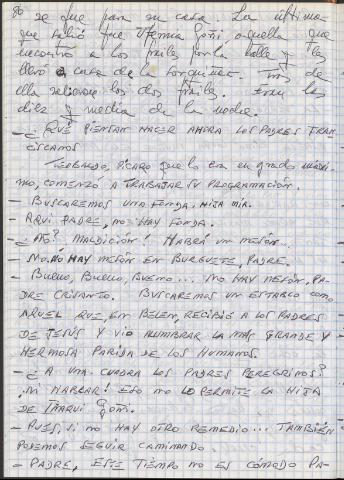 86 se que para su casa. La última
que salió fue Uternia Goñi aquella que
encontró a los frailes por la calle y les
llevó a casa de la Jorquines. Tras de
ella salieron los dos frailes. Eran las
diez y media de la noche.
- ¿ QUÉ PIENSAN HACER AHORA LOS PADRES FRAN-
CISCANOS
TEOBALDO, PÍCARO que lo era en grado máxi-
mo, COMENZÓ A TRABAJAR SU PROGRAMACIÓN.
- BUSCAREMOS UNA FONDA, HIJA MÍA.
- AQUÍ PADRE, NO HAY FONDA.
- ¿NO? MALDICIÓN! HABRÁ UN MESÓN...
- NO. NO HAY MESÓN EN BURGUETE, PADRE.
- BUENO, BUENO, BUENO... NO HAY MESÓN, PA-
DRE CRISANTO. BUSCAREMOS UN ESTABLO COMO
AQUEL QUE, EN BELEN, RECIBIÓ A LOS PADRES
DE JESÚS Y VIO ALUMBRAR LA MÁS GRANDE Y
HERMOSA PARIDA DE LOS HUMANOS.
- ¿ A UNA CUADRA LOS PADRES PEREGRINOS?
¡NI HABLAR! ESO NO LO PERMITE LA HIJA
DE IÑAQUI GOÑI.
- PUES, SI NO HAY OTRO REMEDIO... TAMBIÉN
PODEMOS SEGUIR CAMINANDO.
- PADRE, ESTE TIEMPO NO ES CÓMODO PA-